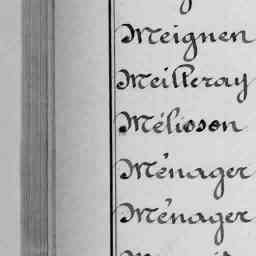 Meignen
Meilleray
Mélisson
Ménager
Ménager